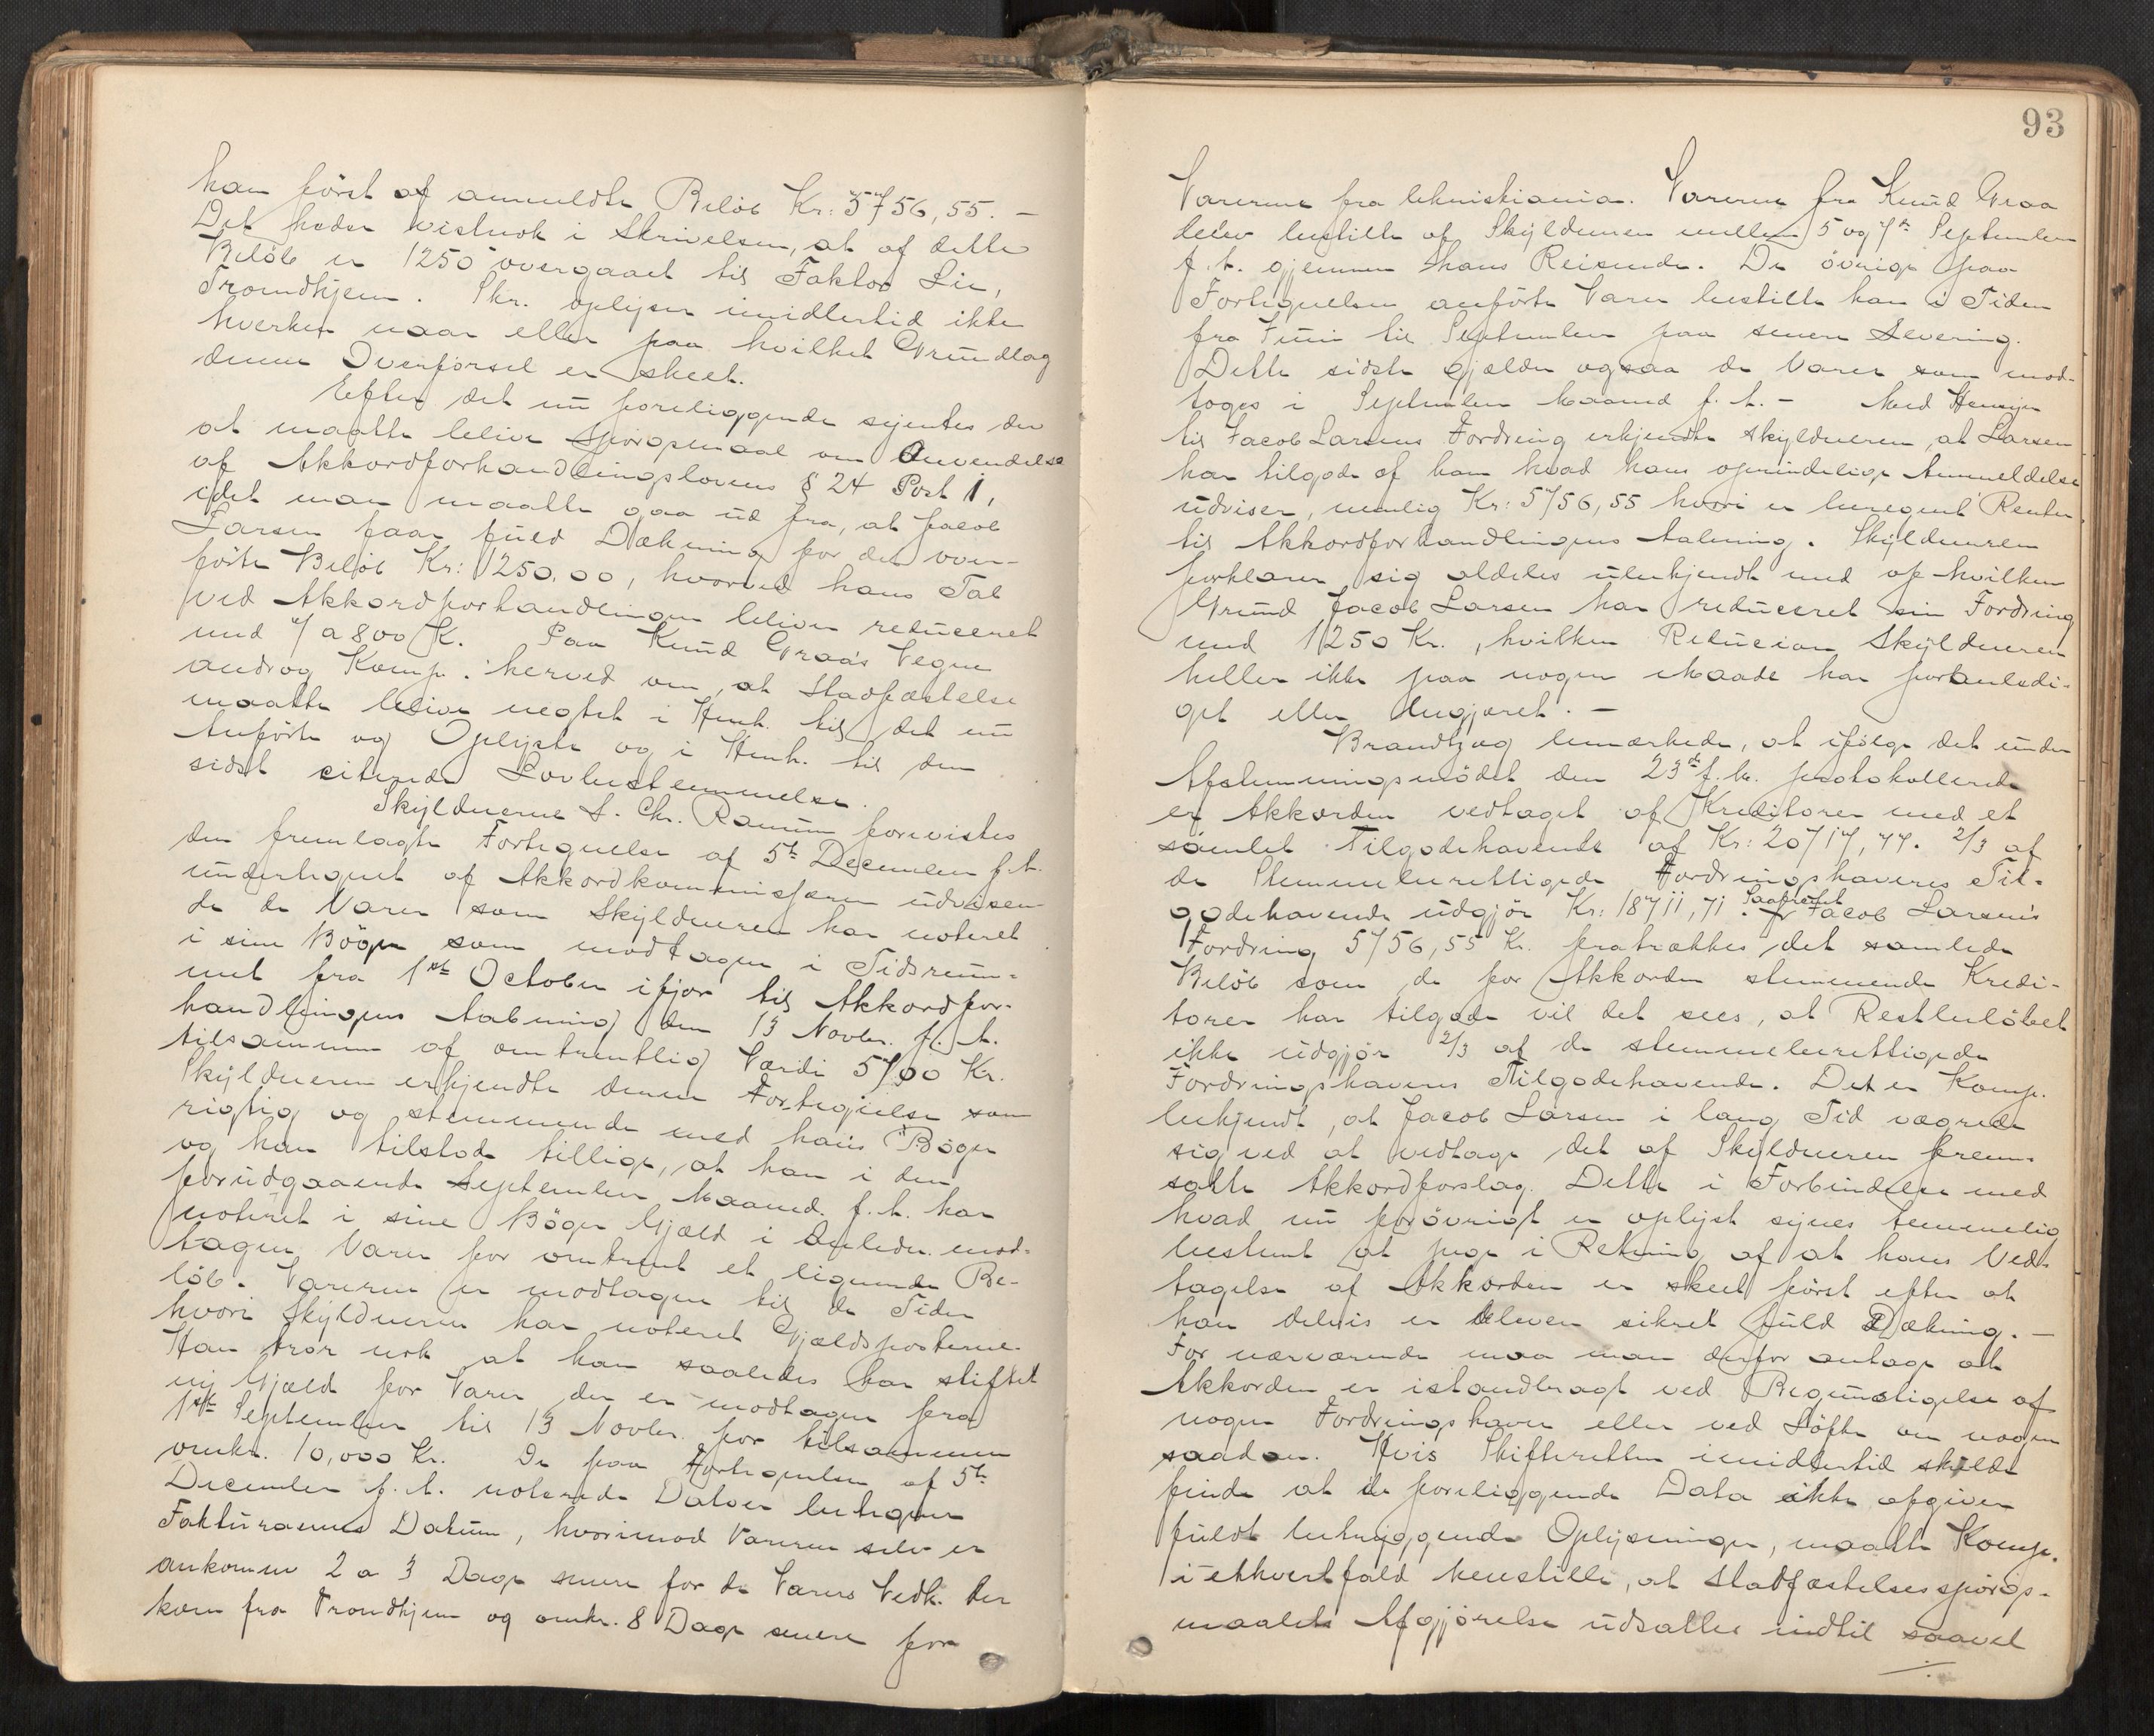 han først af anmeldte Beløb Kr: 5756,55. –
Det heder vistnok i Skrivelsen, at af dette
Beløb er 1250 overgaaet til Faktor Lie,
Trondhjem. Skr. oplyser imidlertid ikke
hverken naar eller paa hvilket Grundlag
denne Overførsel er skeet.
Efter det nu foreliggende syntes der
at maatte blive Spørgsmaal om Anvendelse
af Akkordforhandlingslovens § 24 Post 1,
idet man maatte gaa ud fra, at Jacob
Larsen faar fuld Dækning for det over-
førte Beløb Kr: 1250,00, hvorved hans Tab
ved Akkordforhandlingen bliver reduceret
med 7 a 800 K. Paa Knud Graa's Vegne
androg Komp. herved om, at Stadfæstelse
maatte blive negtet i Henh. til det nu
Anførte og Oplyste og i Henh. til den
sidst citerede Lovbestemmelse.
Skyldnerne S. Chr. Ramm forevistes
den fremlagte Fortegnelse af 5te December f. A.
undertegnet af Akkordkommissæren udvisen-
de de Varer som Skyldneren har noteret
i sine Bøger som modtagen i Tidsrum-
met fra 1ste October ifjor til Akkordfor-
handlingens Aabning den 13 Novbr. f. A.
tilsammen af omtrentlig Værdi 5700 Kr.
Skyldneren erkjendte denne Fortegnelse som
rigtig og stemmende med hans Bøger
og han tilstod tillige, at han i den
forudgaaende September Maaned f. A. har
noteret i sine Bøger Gjæld i Anledn. mod-
tagen Varer for omtrent et lignende Be-
løb. Varerne er modtagen til de Tider
hvori Skyldneren har noteret Gjældsposterne.
Han tror nok at han saaledes har stiftet
ny Gjæld for Varer der er modtagen fra
1ste September til 13 Novbr. for tilsammen
omkr. 10,000 Kr. De paa Fortegnelsen af 5te
December f. A. noterede Datoer betegner
Fakturaernes Datum, hvorimod Varerne selv er
ankommen 2 a 3 Dage senere for de Varers Vedk. der
kom fra Trondhjem og omkr. 8 Dage senere for
93
Varerne fra Christiania. Varerne fra Knud Graa
blev bestilte af Skyldneren mellem 5 og 7de September
f. A. gjennem hans Reisende. De øvrige paa
Fortegnelsen anførte Varer bestilte han i Tiden
fra Juni til September paa senere Levering.
Dette sidste gjælder ogsaa de Varer som mod-
toges i September Maaned f. A. – Med Hensyn
til Jacob Larsens Fordring erkjendte Skyldneren, at Larsen
har tilgode af ham hvad hans oprindelige Anmeldelse
udviser, nemlig Kr: 5756,55 hvori er beregnet Renter
til Akkordforhandlingens Aabning. Skyldneren
forklarer sig aldeles ubekjendt med af hvilken
Grund Jacob Larsen har reduceret sin Fordring
med 1250 Kr., hvilken Reducion Skyldneren
heller ikke paa nogen Maade har foranledi-
get eller begjæret. –
Brandtzæg bemærkede, at ifølge det under
Afstemningsmødet den 23de f. M. protokollerede
er Akkorden vedtaget af Kreditorer med et
samlet Tilgodehavende af Kr: 20717,77. 2/3 af
de Stemmeberettigede Fordringshaveres Til-
godehavende udgjør Kr: 18711,71. Saafremt Jacob Larsen's
Fordring 5756,55 Kr. fratrækkes det samlede
Beløb som de for Akkorden stemmende Kredi-
torer har tilgode vil det sees, at Restbeløbet
ikke udgjør 2/3 af de stemmeberettigede
Fordringshaveres Tilgodehavende. Det er Komp.
bekjendt, at Jacob Larsen i lang Tid vægrede
sig ved at vedtage det af Skyldneren frem-
satte Akkordforslag. Dette i Forbindelse med
hvad nu forøvrigt er oplyst synes temmelig
bestemt at pege i Retning af at hans Ved-
tagelse af Akkorden er skeet først efter at
han delvis er bleven sikret fuld Dækning. –
For nærværende maa man derfor antage at
Akkorden er istandbragt ved Begunstigelse af
nogen Fordringshaver eller ved Løfte om nogen
saadan. Hvis Skifteretten imidlertid skulde
finde at de foreliggende Data ikke afgiver
fuldt betryggende Oplysninger, maatte Komp.
i ethvertfald henstille, at Stadfæstelsesspørgs-
maalets Afgjørelse udsættes indtil saavel